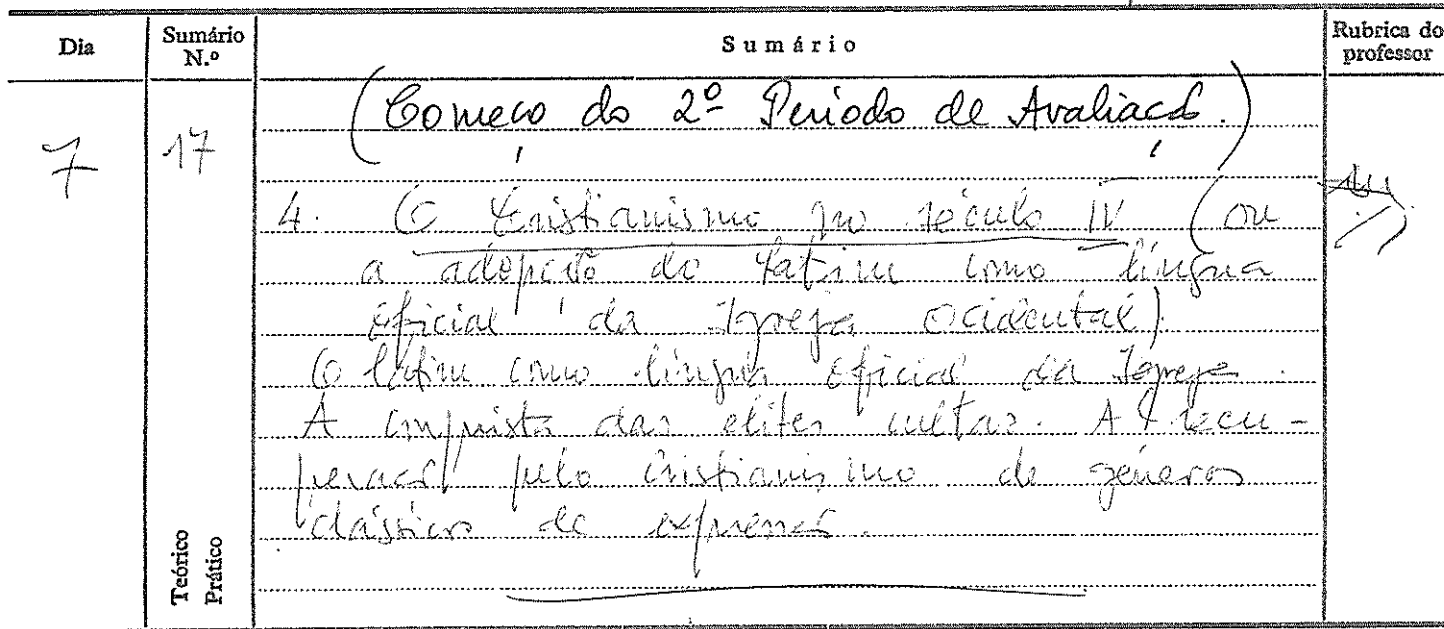 Dia
Sumário N.º
Sumário
Rubrica do professor
7
17
(Começo do 2º Período de Avaliação.)
4. O Cristianismo no século IV (ou
a adopção do latim como língua
oficial da Igreja Ocidental).
O latim como língua oficial da Igreja.
A conquista das elites cultas. A recu-
peração pelo Cristianismo de géneros
clássicos de expressão.
Teórico
Prático